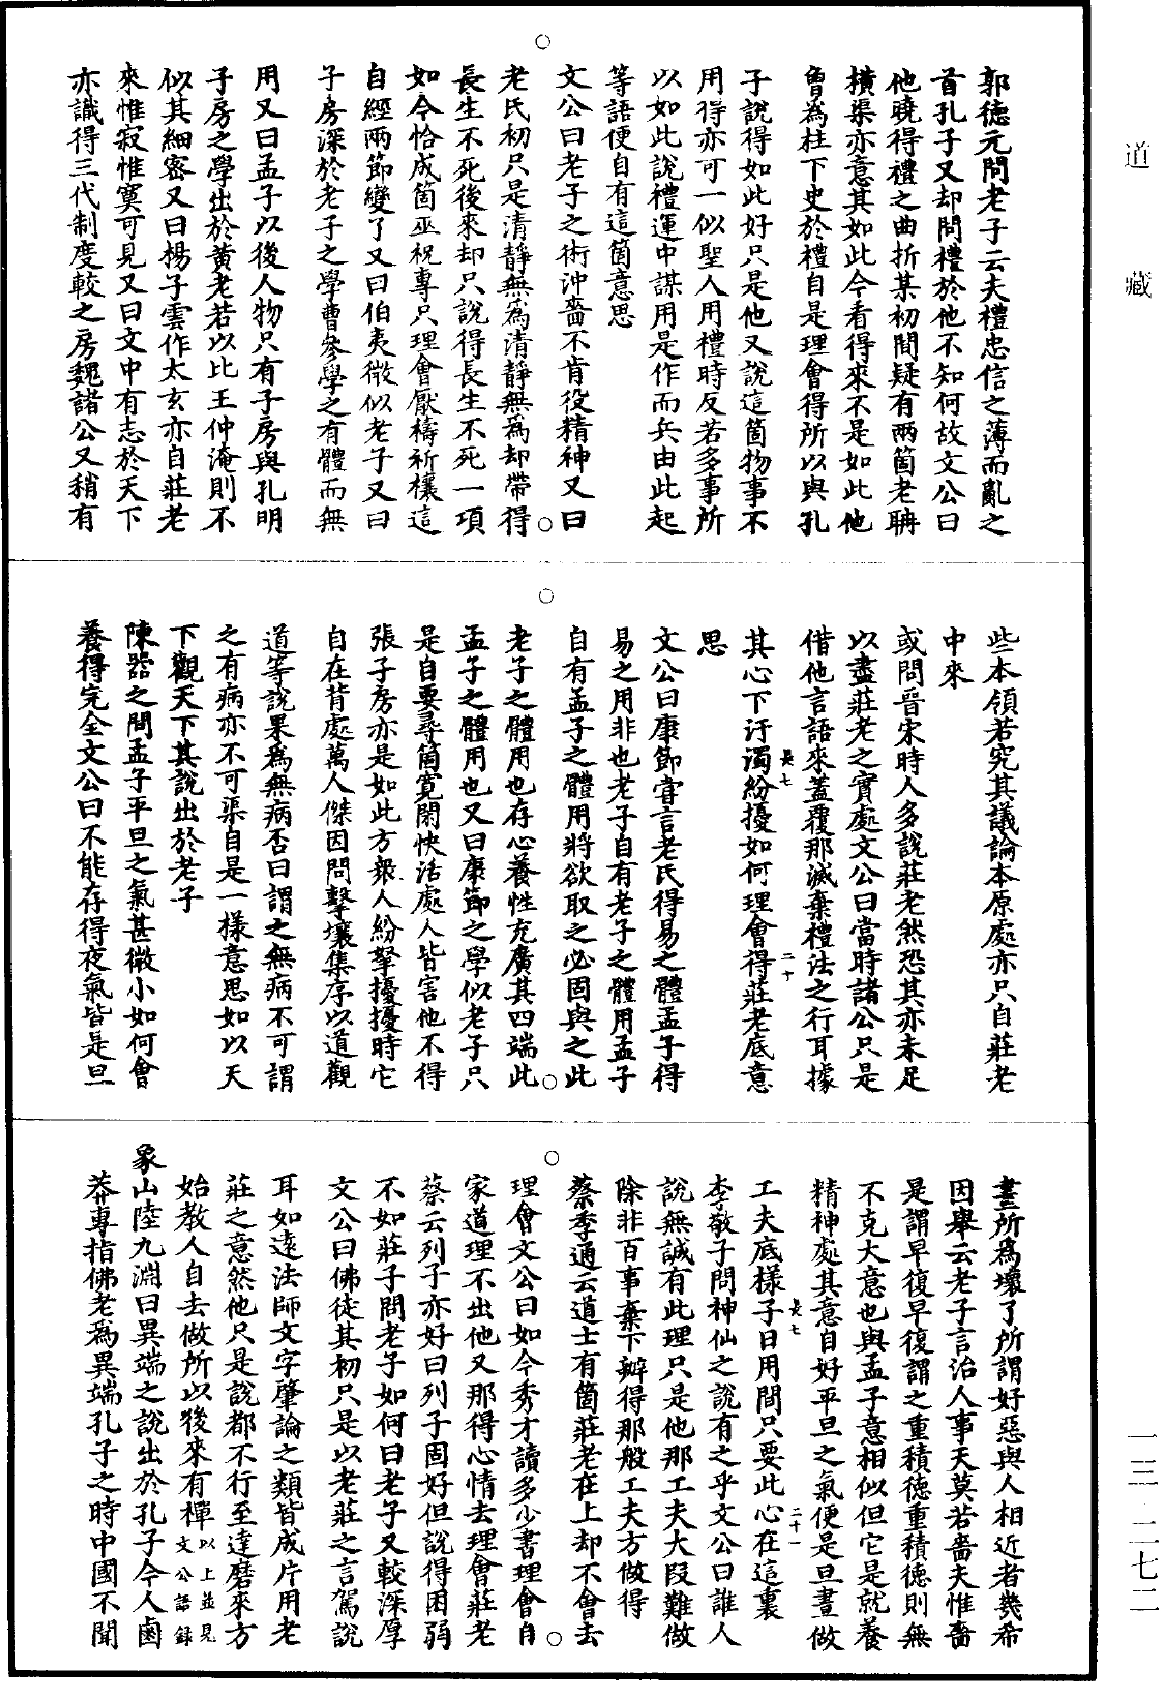 道藏
郭德元問老子云夫禮忠信之薄而亂之
首孔子又却問禮於他不知何故文公曰
他曉得禮之曲折某初間疑有兩箇老聃
橫渠亦意其如此今看得來不是如此他
曾為柱下史於禮自是理會得所以與孔
子說得如此好只是他又說這箇物事不
用得亦可一似聖人用禮時反若多事所
以如此說禮運中謀用是作而兵由此起
等語便自有這箇意思
文公曰老子之術沖嗇不肯役精神又曰
老氏初只是清靜無為清靜無為却帶得
長生不死後來却只說得長生不死一項
如今恰成箇巫祝專只理會厭禱祈禳這
自經兩節變了又曰伯夷微似老子又曰
子房深於老子之學曹參學之有體而無
用又曰孟子以後人物只有子房與孔明
子房之學出於黃老若以比王仲淹則不
似其細密又曰楊子雲作太玄亦自莊老
來惟寂惟寞可見又曰文中有志於天下
亦識得三代制度較之房魏諸公又稍有
些本領若究其議論本原處亦只自莊老
中來
或問晉宋時人多說莊老然恐其亦未足
以盡莊老之實處文公曰當時諸公只是
借他言語來蓋覆那滅棄禮法之行耳據
長七
二十
其心下汙濁紛擾如何理會得莊老底意
思
文公曰康節嘗言老氏得易之體孟子得
易之用非也老子自有老子之體用孟子
自有孟子之體用將欲取之必固與之此
老子之體用也存心養性充廣其四端此
孟子之體用也又曰康節之學似老子只
是自要尋箇寬閑快活處人皆害他不得
張子房亦是如此方衆人紛拏擾擾時它
自在背處萬人傑因問擊壤集序以道觀
道等說果為無病否曰謂之無病不可謂
之有病亦不可渠自是一樣意思如以天
下觀天下其說出於老子
陳器之問孟子平旦之氣甚微小如何會
養得完全文公曰不能存得夜氣皆是旦
晝所為壞了所謂好惡與人相近者幾希
因舉云老子言治人事天莫若嗇夫惟嗇
是謂早復早復謂之重積德重積德則無
不克大意也與孟子意相似但它是就養
精神處其意自好平旦之氣便是旦晝做
長七
二十一
工夫底樣子日用間只要此心在這裏
李敬子問神仙之說有之乎文公曰誰人
說無誠有此理只是他那工夫大段難做
除非百事棄下辦得那般工夫方做得
蔡季通云道士有箇莊老在上却不會去
理會文公曰如今秀才讀多少書理會自
家道理不出他又那得心情去理會莊老
蔡云列子亦好曰列子固好但說得困弱
不如莊子問老子如何曰老子又較深厚
文公曰佛徒其初只是以老莊之言駕說
耳如遠法師文字肇論之類皆成片用老
莊之意然他只是說都不行至達磨來方
始教人自去做所以後來有禪以上並見文公語錄
象山陸九淵曰異端之說出於孔子今人鹵
莽專指佛老為異端孔子之時中國不聞
一三-二七二